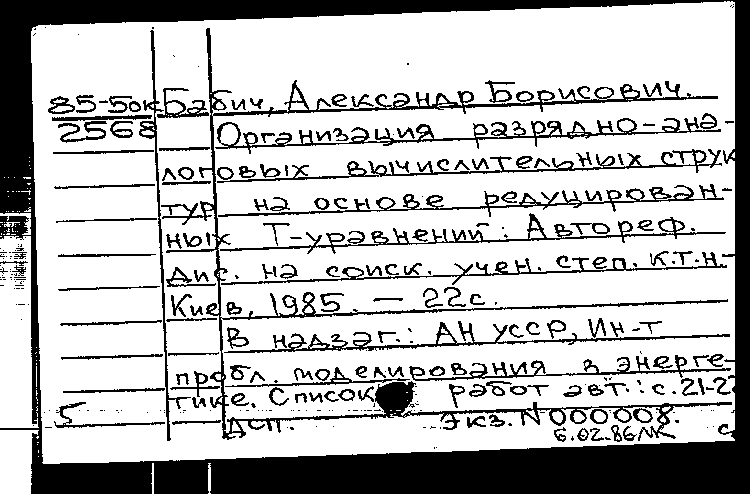 85-5ок Бабич, Александр Борисович.
2568 Организация разрядно-ана-
логовых вычислительных струк
тур на основе редуцирован-
ных Т-уравнений: Автореф.
дис. на соиск. учен. степ. к.т.н.
Киев, 1985. — 22с.
В надзаг.: АН УССР, Ин-т
пробл. моделирования в энерге-
тике. Список работ авт.: с.21-2
5 ДСП. Экз. N 000008.
6.02.86